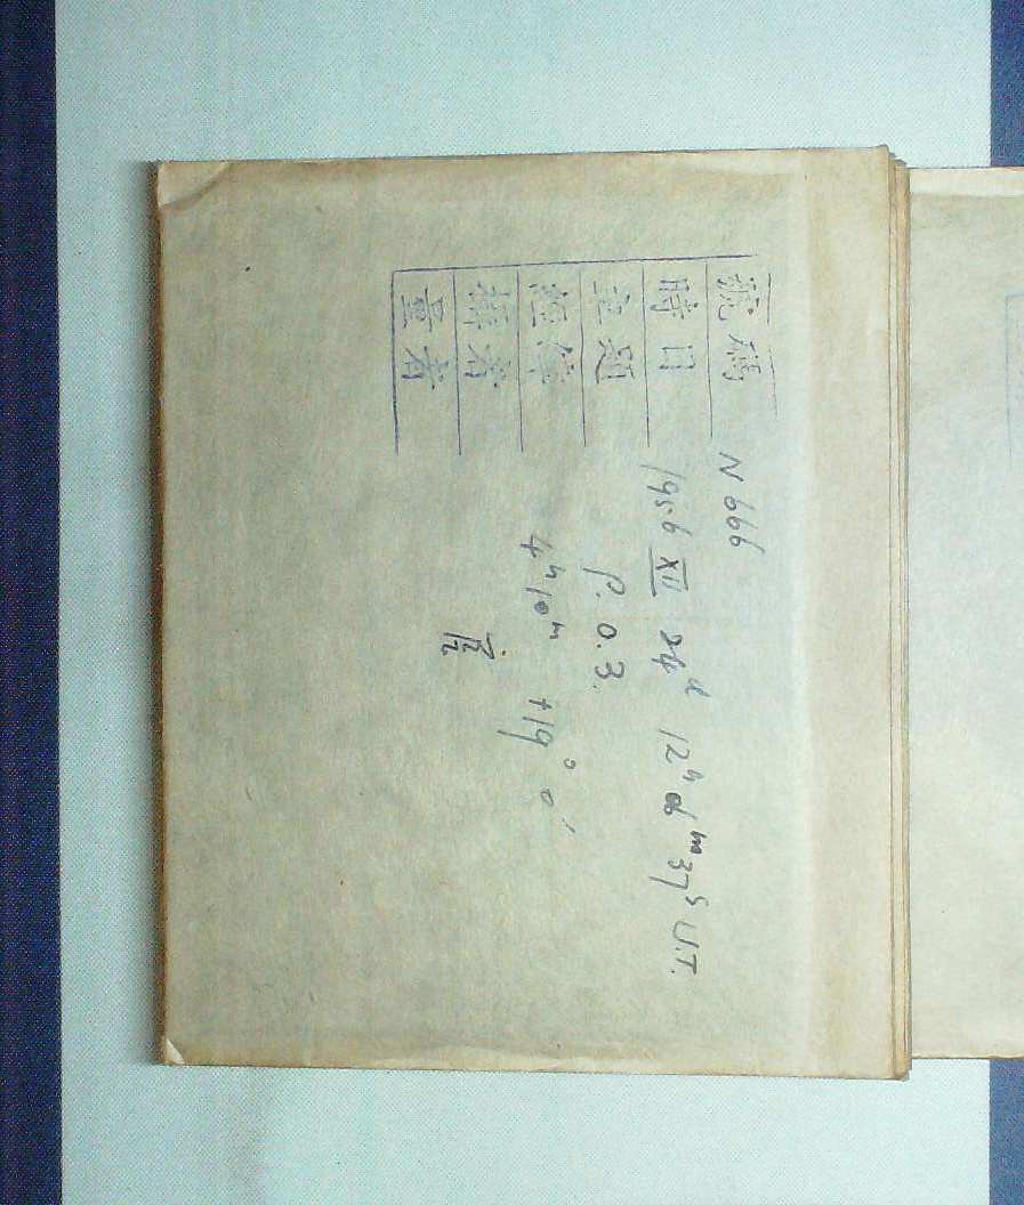 號碼 N 666
時日 1956 XII 24d 12h 06m 37s U.T.
P. 0.3.
經緯 4h 10m +19° 0′
攝者
量者